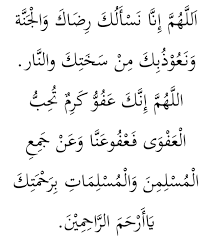 اَللّٰهُمَّ إِنَّا نَسْأَلُكَ رِضَاكَ وَالْجَنَّةَ
وَنَعُوْذُبِكَ مِنْ سَخَتِكَ والنَّار.
اللَّهُمَّ إِنَّكَ عَفُوٌّ كَرِمٌ تُحِبُّ
الْعَفْوَى فَعْفُوعَنَّا وَعَنْ جَمِعِ
الْمُسْلِمِنَ وَالْمُسْلِمَاتِ بِرَحْمَتِكَ
يَاأَرْحَمَ الرَّاحِمِيْنَ.